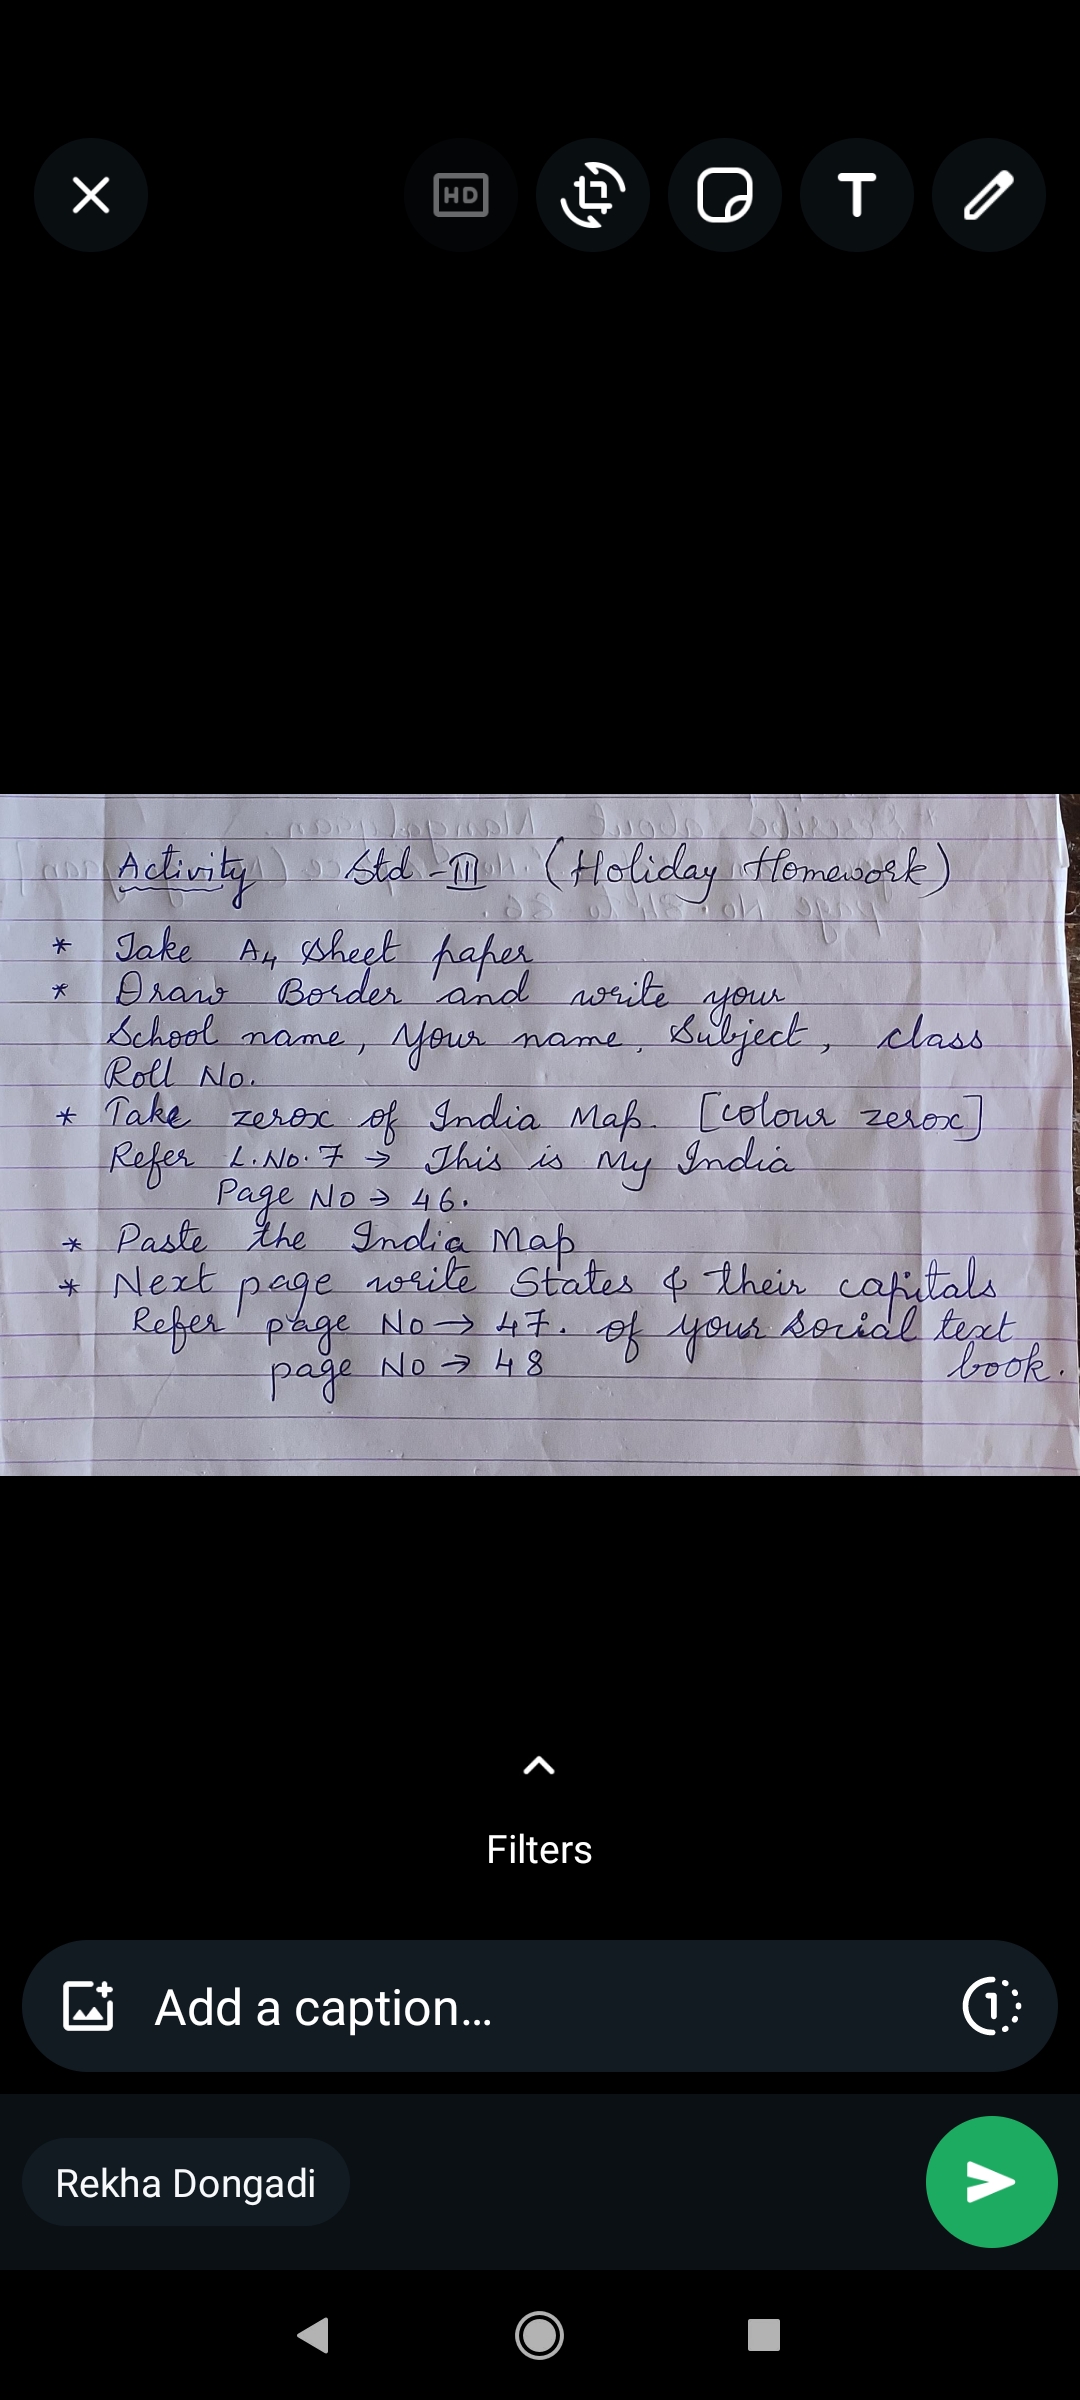 HD
T
Activity Std - III (Holiday Homework)
* Take A4 sheet paper
* Draw Border and write your
School name, Your name, Subject, class
Roll No.
* Take zerox of India Map. [colour zerox]
Refer L.No. 7 → This is My India
Page No → 46.
* Paste the India Map
* Next page write States & their capitals
Refer page No → 47. of your social text
page No → 48 book.
Filters
Add a caption...
1
Rekha Dongadi